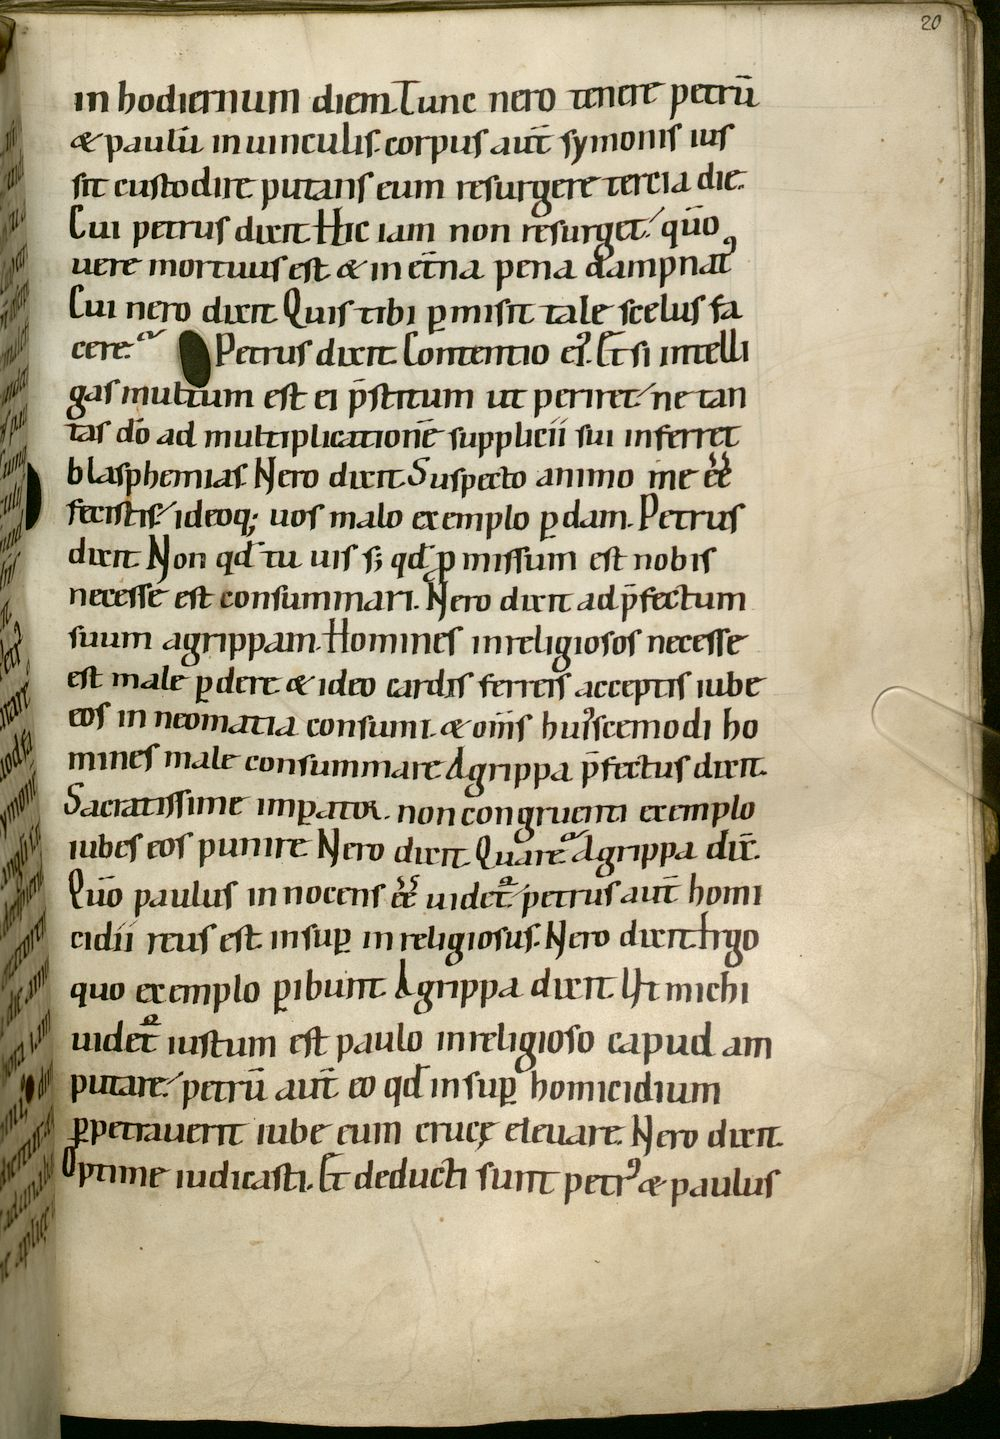 20
in hodiernum diem. Tunc nero tenere petrū
& paulū in uinculis. corpus aut̄ symonis ius
sit custodire putans eum resurgere tercia die.
Cui petrus dixit. Hic iam non resurget. qūo
uere mortuus est & in et̄na pena dampnat᷒
Cui nero dixit Quis tibi ꝑmisit tale scelus fa
cere. Petrus dixit. Contentio ei᷒. Et si intelli
gas multum est ei p̄stitum ut periret. ne tan
tas do᷒ ad multiplicationē supplicii sui inferret
blasphemias. Nero dixit. Suspecto animo me ēē
fecistis. ideoq; uos malo exemplo ꝑdam. Petrus
dixit Non qd̄ tu uis s; qd̄ ꝓmissum est nobis
necesse est consummari. Nero dixit ad p̄fectum
suum agrippam. Homines inreligiosos necesse
est male ꝑdere & ideo cardis ferreis acceptis iube
eos in neomatia consumi. & om̄s hui᷒scemodi ho
mines male consummare Agrippa p̄fectus dixit.
Sacratissime imꝑator. non congruenti exemplo
iubes eos punire Nero dixit Quare Agrippa dix̄.
Qūo paulus innocens ēē uidet᷑. petrus aut̄ homi
cidii reus est. insuꝑ inreligiosus. Nero dixit. Ergo
quo exemplo ꝑibunt. Agrippa dixit. Ut michi
uidet᷑ iustum est paulo inreligioso capud am
putare. petrū aut̄ eo qd̄ insuꝑ homicidium
ꝑpetrauerit iube eum crucę eleuare. Nero dixit.
Optime iudicasti. Et deducti sunt petr᷒ & paulus